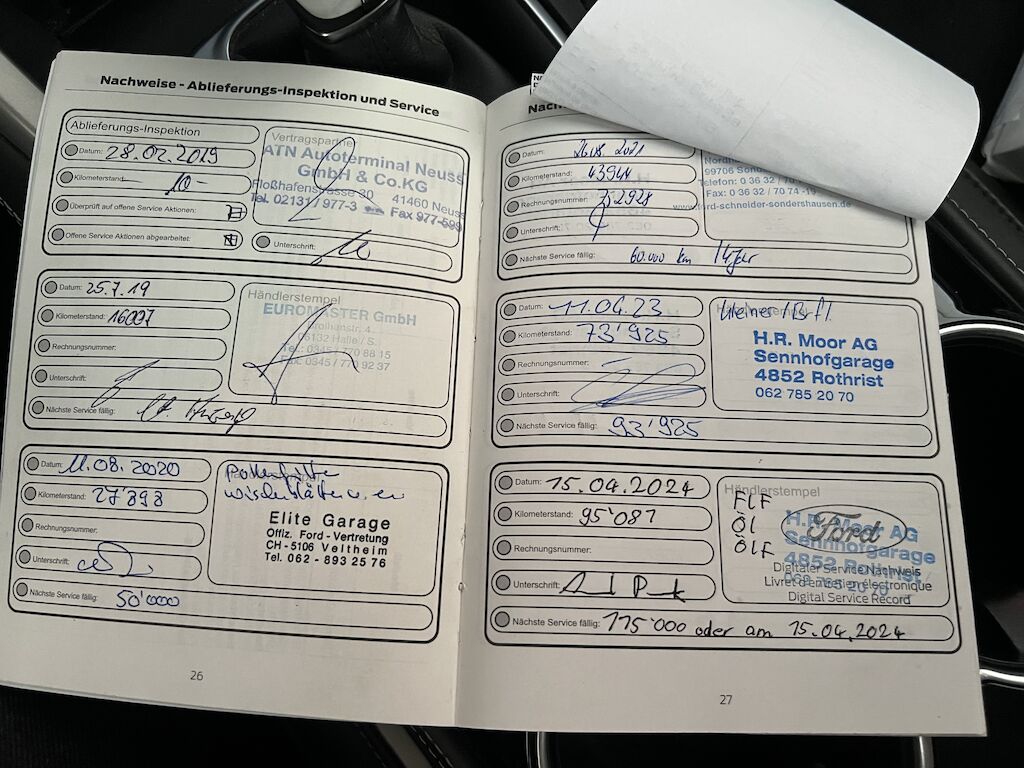 Nachweise - Ablieferungs-Inspektion und Service
Ablieferungs-Inspektion
Datum: 28.02.2019
Kilometerstand: -10-
Überprüft auf offene Service Aktionen:
Offene Service Aktionen abgearbeitet:
Vertragspartner
ATN Autoterminal Neuss
GmbH & Co.KG
Floßhafenstrasse 30 41460 Neuss
Tel. 02131/977-3 Fax 977-599
Unterschrift:
Datum: 25.7.19
Kilometerstand: 16007
Rechnungsnummer:
Unterschrift:
Nächste Service fällig:
Händlerstempel
EUROMASTER GmbH
06132 Halle / S.
Tel.: 0345 / 770 88 15
Fax: 0345 / 770 92 37
Datum: 11.08.2020
Kilometerstand: 27'898
Rechnungsnummer:
Unterschrift:
Nächste Service fällig: 50'000
Elite Garage
Offiz. Ford - Vertretung
CH - 5106 Veltheim
Tel. 062 - 893 25 76
26
Datum: 26.08.2021
Kilometerstand: 43944
Rechnungsnummer:
Unterschrift:
Nächste Service fällig: 60.000 km
99706
Telefon: 0 36 32 / 70 74 -0
Fax: 0 36 32 / 70 74 -19
www.ford-schneider-sondershausen.de
Datum: 11.04.23
Kilometerstand: 73'925
Rechnungsnummer:
Unterschrift:
Nächste Service fällig: 93'925
H.R. Moor AG
Sennhofgarage
4852 Rothrist
062 785 20 70
Datum: 15.04.2024
Kilometerstand: 95'081
Rechnungsnummer:
Unterschrift:
Nächste Service fällig: 115'000 oder am 15.04.2024
Händlerstempel
FLF
Öl
ÖLF
H.R. Moor AG
Sennhofgarage
4852 Rothrist
062 785 20 70
Ford
Digitaler Service Nachweis
Livret d'entretien électronique
Digital Service Record
27